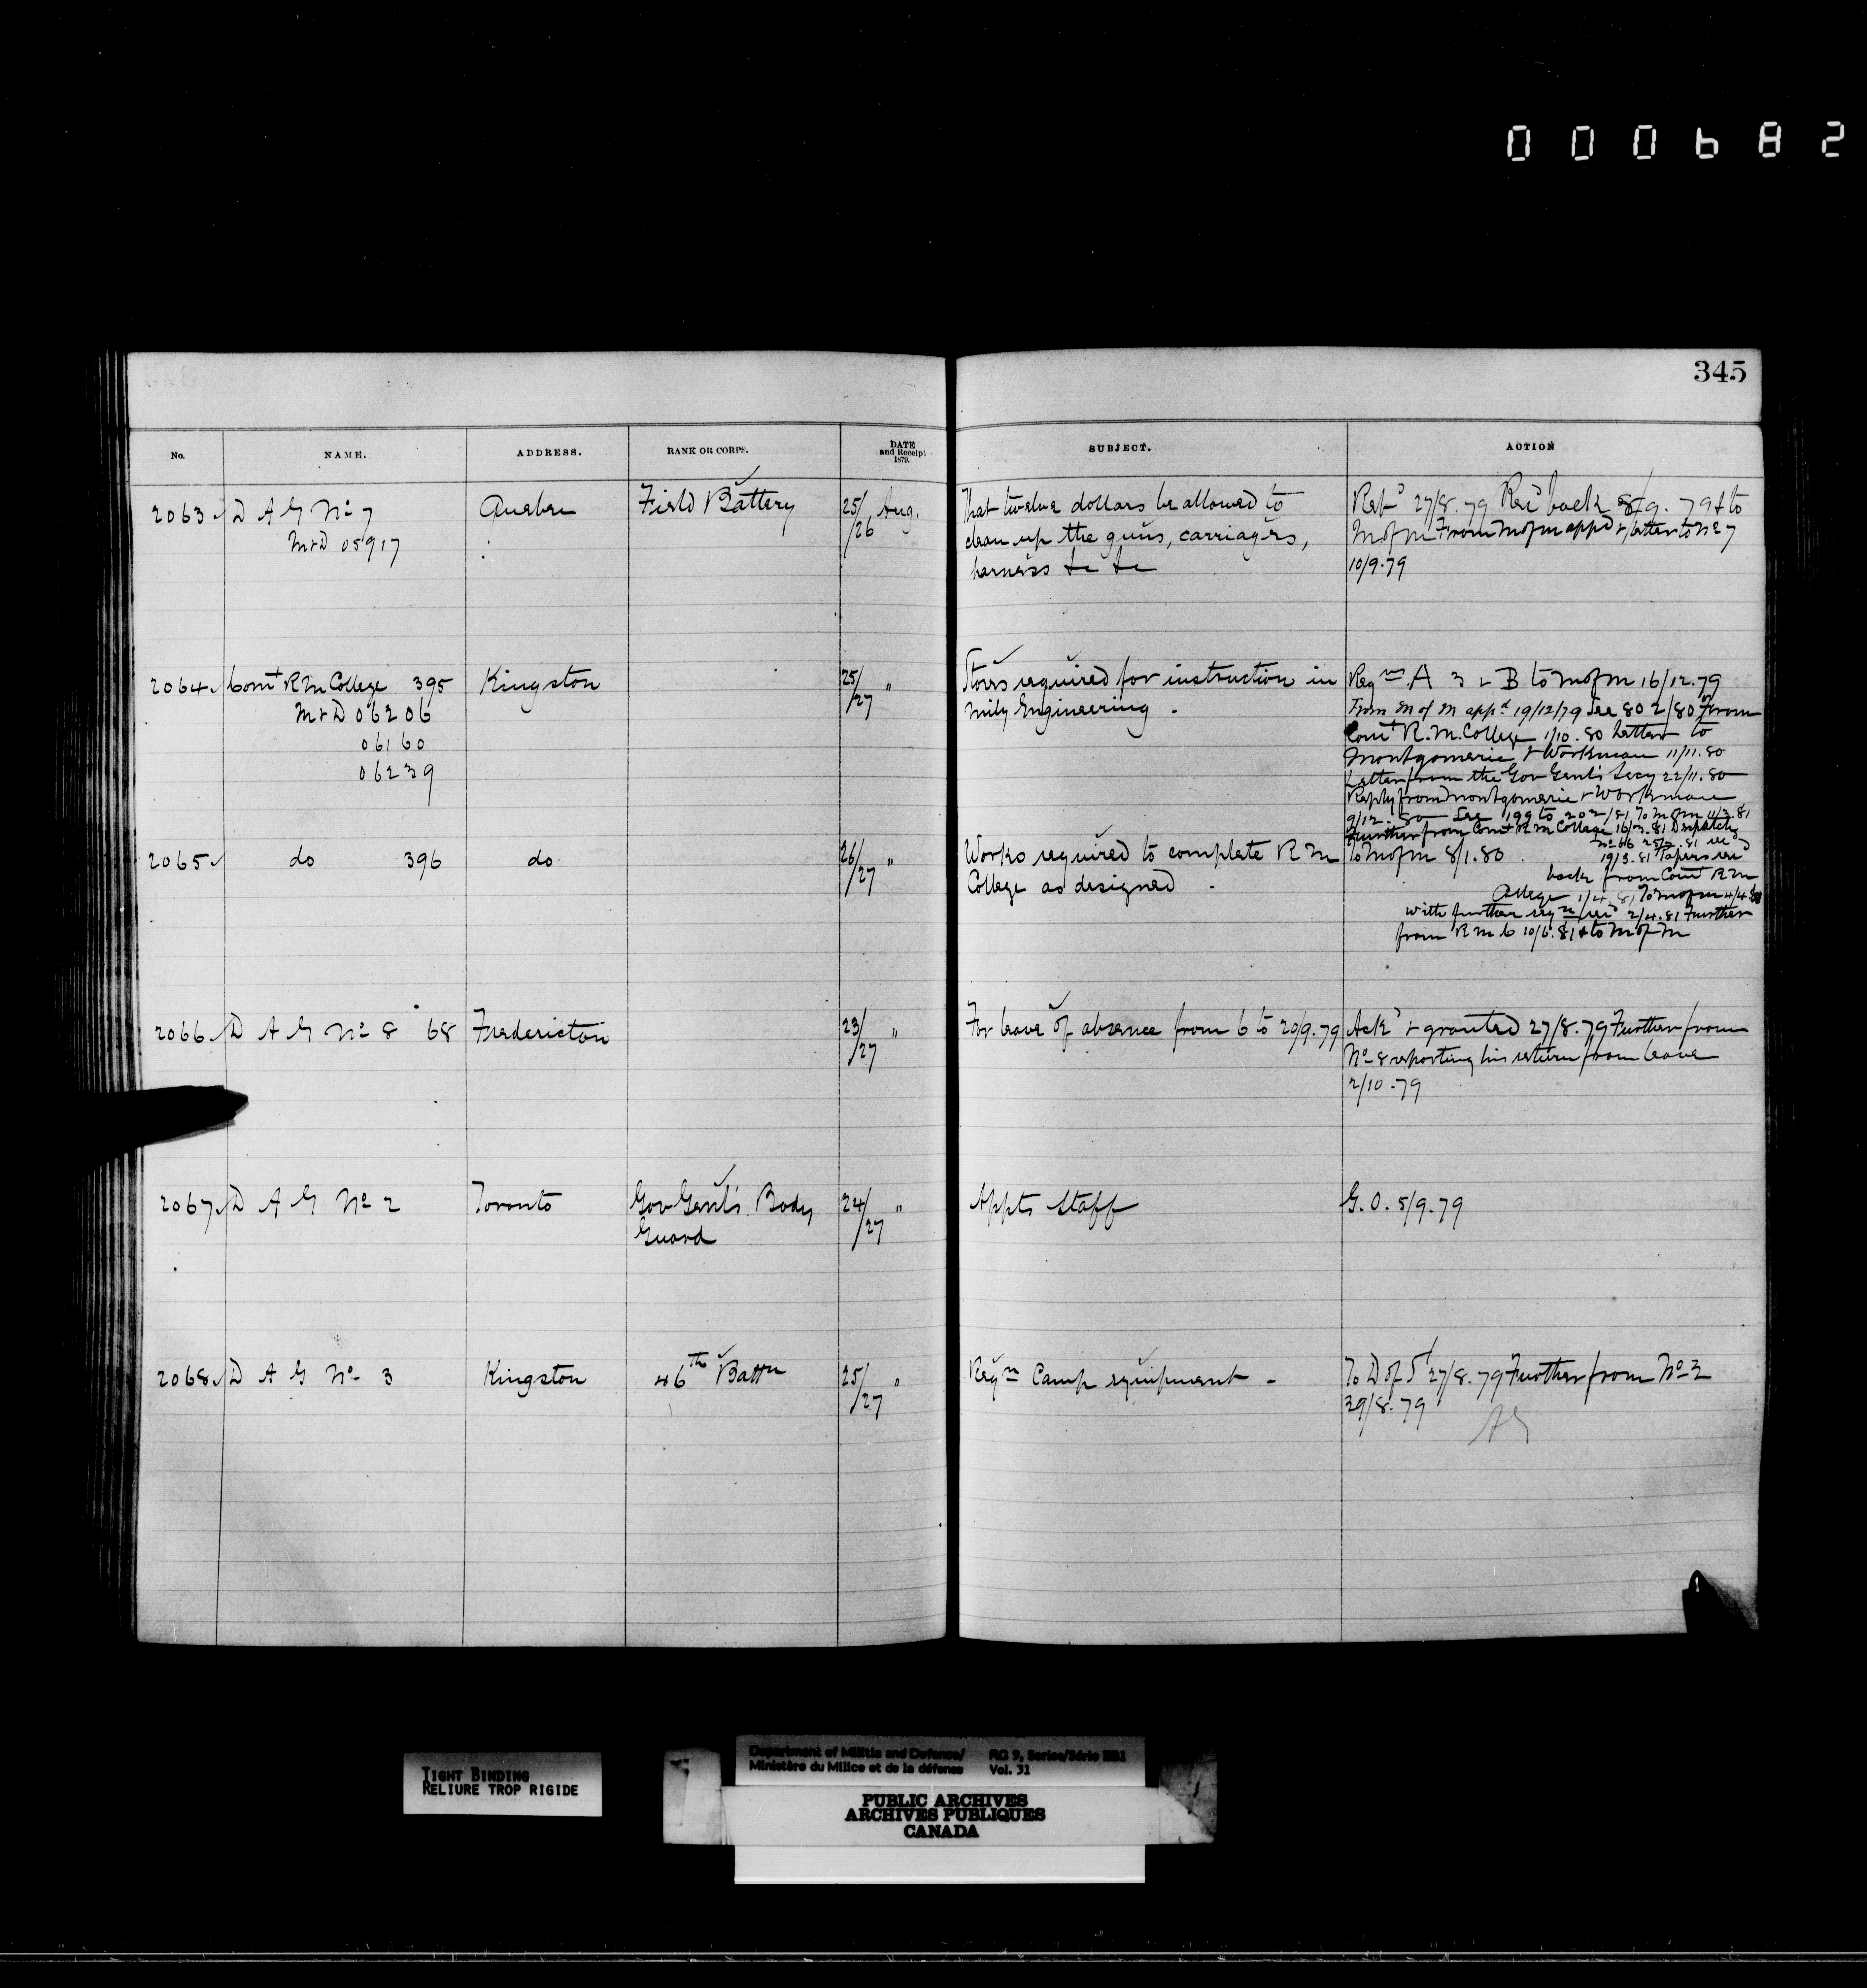 000682
345
No. NAME. ADDRESS. RANK OR CORPS. DATE and Receipt 1879. SUBJECT. ACTION
2063 D A G No 7 Quebec Field Battery 25/26 Aug. That twelve dollars be allowed to
M & D 05917
clean up the guns, carriages,
harness &c &c
Refd 27/8.79 Recd back 8/9.79 & to
M of M From M of M appd & letter to No 7
10/9.79
2064 Comt R M College 395 Kingston 25/27 " Stores required for instruction in
M & D 06206
06160
06239
Mily Engineering .
Reqns A 3 & B to M of M 16/12.79
From M of M appd 19/12/79 See 802/80 From
Comt R. M. College 1/10.80 Letter to
Montgomerie & Workman 11/11.80
Letter from the Gov Genl's Secy 22/11.80
Reply from Montgomerie & Workman
9/12.80 See 199 to 202/81 To M of M 11/3.81
Further from Comt R M College 16/3.81 Dispatch
No 66 recd
19/3.81 Papers recd
back from Comt R M
College 1/4.81 To M of M 4/4.81
with further reqn recd 2/4.81 Further
from R M C 10/6.81 & to M of M
2065 do 396 do 26/27 " Works required to complete R M
College as designed .
To M of M 8/1.80 .
2066 D A G No 8 68 Fredericton 23/27 " For leave of absence from 6 to 20/9.79
Ackd & granted 27/8.79 Further from
No 8 reporting his return from leave
2/10.79
2067 D A G No 2 Toronto Gov Genl's Body
Guard
24/27 " Appts Staff G. O. 5/9.79
2068 D A G No 3 Kingston 46th Battn 25/27 " Reqn Camp equipment -
To D of S 27/8.79 Further from No 3
29/8.79
TIGHT BINDING
RELIURE TROP RIGIDE
Department of Militia and Defence/ RG 9, Series/Série IIB1
Ministère du Milice et de la défense Vol. 31
PUBLIC ARCHIVES
ARCHIVES PUBLIQUES
CANADA